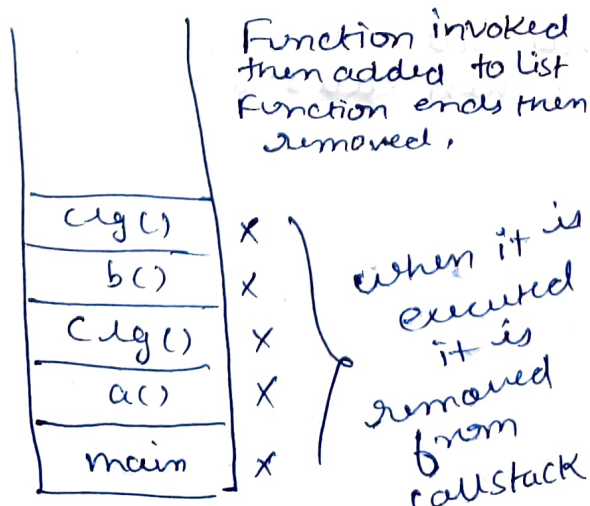 Function invoked
then added to List
Function ends then
removed.
clg()
x
b()
x
Clg()
x
a()
x
main
x
when it is
executed
it is
removed
from
callstack